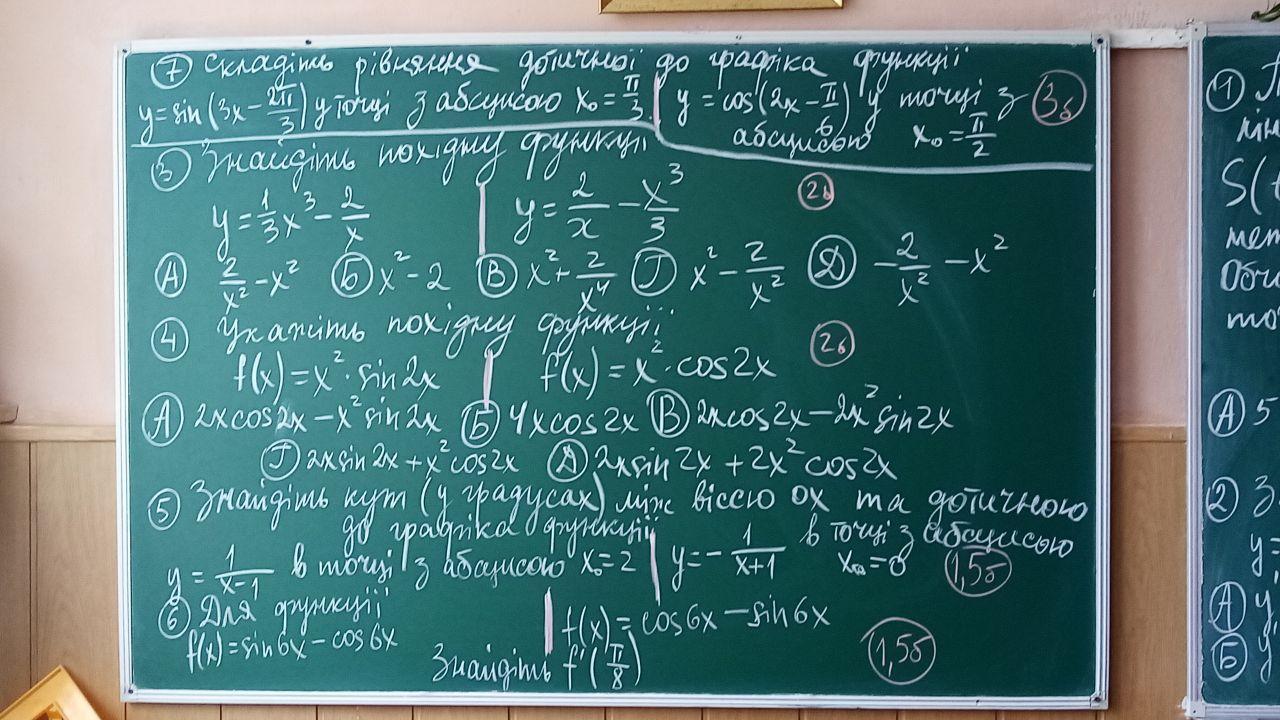 7 Складіть рівняння дотичної до графіка функції
y = sin(3x - 2π/3) у точці з абсцисою x₀ = π/3 | y = cos(2x - π/6) у точці з абсцисою x₀ = π/2 3б
3 Знайдіть похідну функції
y = 1/3 x³ - 2/x | y = 2/x - x³/3 2б
А 2/x² - x² Б x² - 2 В x² + 2/x⁴ Г x² - 2/x² Д -2/x² - x²
4 Укажіть похідну функції
f(x) = x² · sin 2x | f(x) = x² · cos 2x 2б
А 2x cos 2x - x² sin 2x Б 4x cos 2x В 2x cos 2x - 2x² sin 2x
Г 2x sin 2x + x² cos 2x Д 2x sin 2x + 2x² cos 2x
5 Знайдіть кут (у градусах) між віссю ox та дотичною
до графіка функції
y = 1/(x-1) в точці з абсцисою x₀ = 2 | y = - 1/(x+1) в точці з абсцисою x₀ = 0 1,5б
6 Для функції
f(x) = sin 6x - cos 6x | f(x) = cos 6x - sin 6x
Знайдіть f'(π/8) 1,5б
1
S(
А 5
2 З
y =
А y'
Б y'